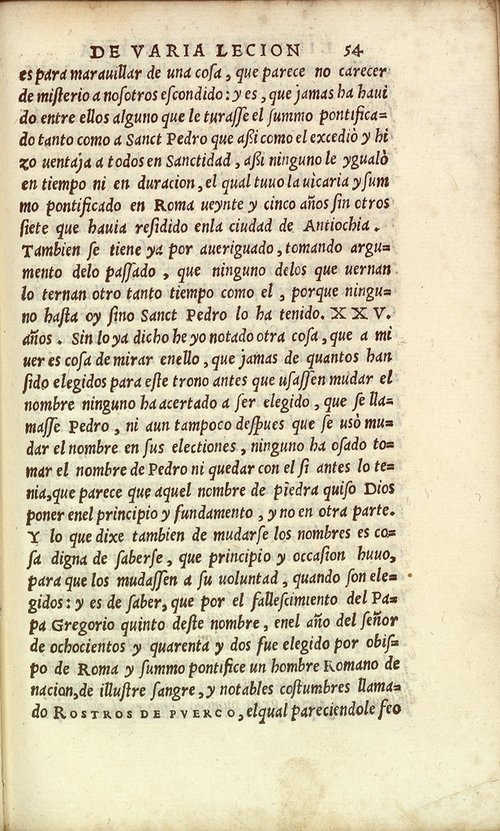 DE VARIA LECION 54
es para marauillar de una cosa, que parece no carecer
de misterio a nosotros escondido: y es, que jamas ha haui
do entre ellos alguno que le turasse el summo pontifica=
do tanto como a Sanct Pedro que assi como el excediò y hi
zo uentaja a todos en Sanctidad, assi ninguno le ygualò
en tiempo ni en duracion, el qual tuuo la uicaria y sum
mo pontificado en Roma ueynte y cinco años sin otros
siete que hauia residido enla ciudad de Antiochia.
Tambien se tiene ya por aueriguado, tomando argu=
mento delo passado, que ninguno delos que uernan
lo ternan otro tanto tiempo como el, porque ningu=
no hasta oy sino Sanct Pedro lo ha tenido. XXV.
años. Sin lo ya dicho he yo notado otra cosa, que a mi
uer es cosa de mirar enello, que jamas de quantos han
sido elegidos para este trono antes que usassen mudar el
nombre ninguno ha acertado a ser elegido, que se lla=
masse Pedro, ni aun tampoco despues que se usò mu=
dar el nombre en sus electiones, ninguno ha osado to=
mar el nombre de Pedro ni quedar con el si antes lo te=
nia, que parece que aquel nombre de piedra quiso Dios
poner enel principio y fundamento, y no en otra parte.
Y lo que dixe tambien de mudarse los nombres es co=
sa digna de saberse, que principio y occasion huuo,
para que los mudassen a su uoluntad, quando son ele=
gidos: y es de saber, que por el fallescimiento del Pa=
pa Gregorio quinto deste nombre, enel año del señor
de ochocientos y quarenta y dos fue elegido por obis=
po de Roma y summo pontifice un hombre Romano de
nacion, de illustre sangre, y notables costumbres llama=
do ROSTROS DE PVERCO, elqual pareciendole feo